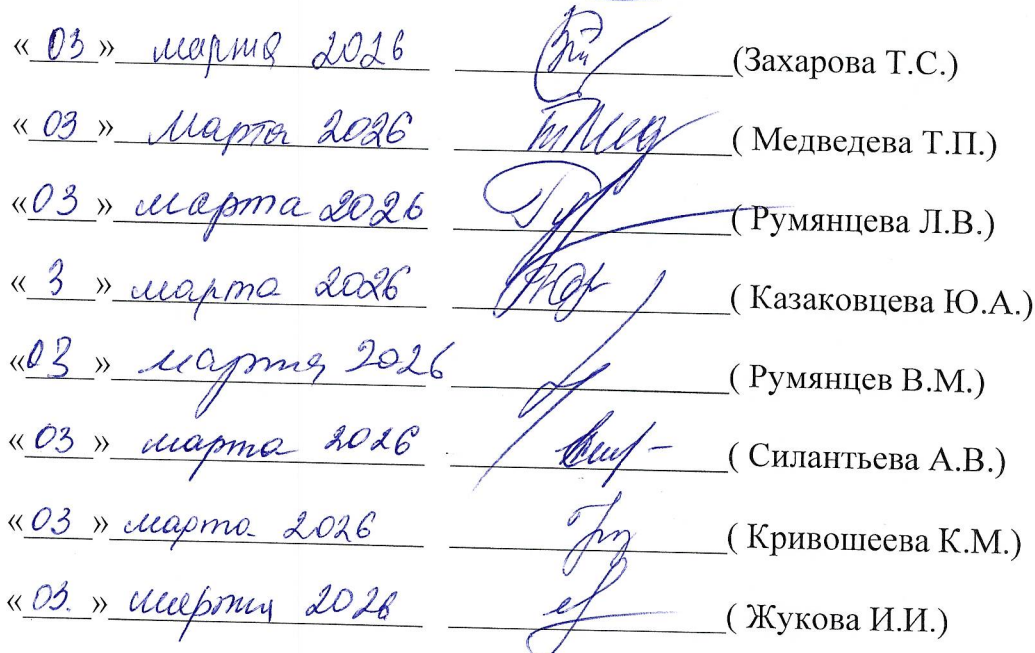 « 03 » марта 2026 (Захарова Т.С.)
« 03 » Марта 2026 ( Медведева Т.П.)
«03 » марта 2026 ( Румянцева Л.В.)
« 3 » марта 2026 ( Казаковцева Ю.А.)
«03 » марта 2026 ( Румянцев В.М.)
« 03 » марта 2026 ( Силантьева А.В.)
«03 » марта 2026 ( Кривошеева К.М.)
«03. » марта 2026 ( Жукова И.И.)